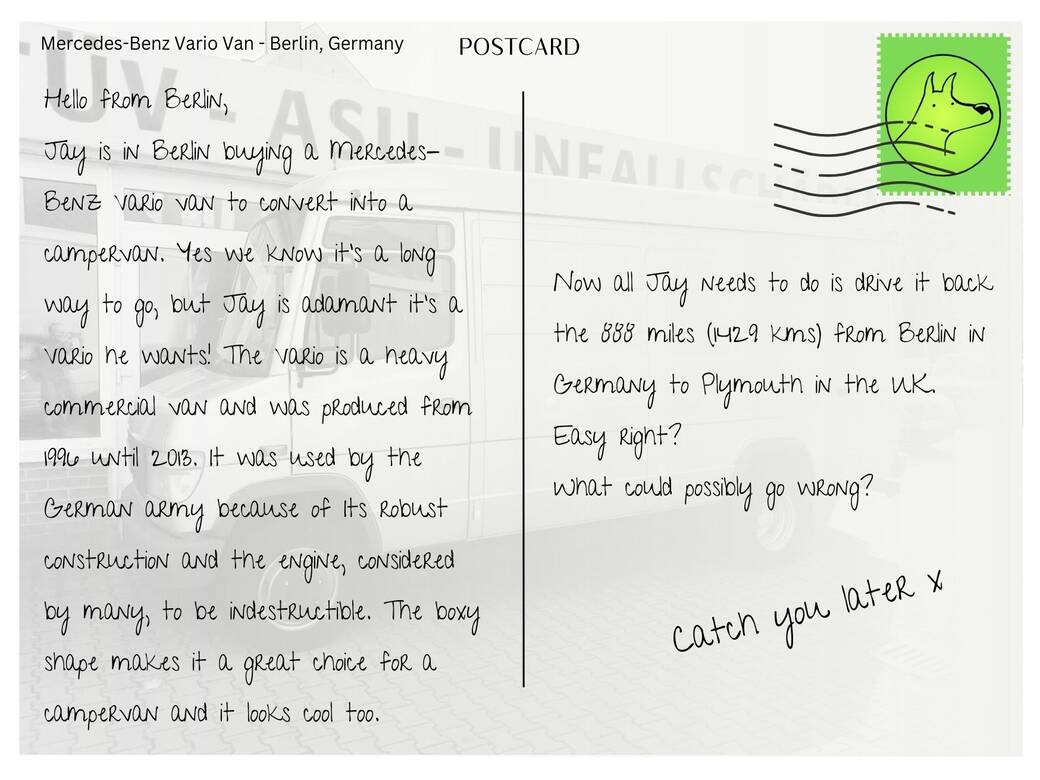 Mercedes-Benz Vario Van - Berlin, Germany
POSTCARD
Hello from Berlin,
Jay is in Berlin buying a Mercedes-
Benz Vario van to convert into a
campervan. Yes we know it's a long
way to go, but Jay is adamant it's a
Vario he wants! The Vario is a heavy
commercial van and was produced from
1996 until 2013. It was used by the
German army because of its robust
construction and the engine, considered
by many, to be indestructible. The boxy
shape makes it a great choice for a
campervan and it looks cool too.
Now all Jay needs to do is drive it back
the 888 miles (1429 kms) from Berlin in
Germany to Plymouth in the UK.
Easy right?
What could possibly go wrong?
Catch you later x
ÜV - ASU - UNFALLSCH